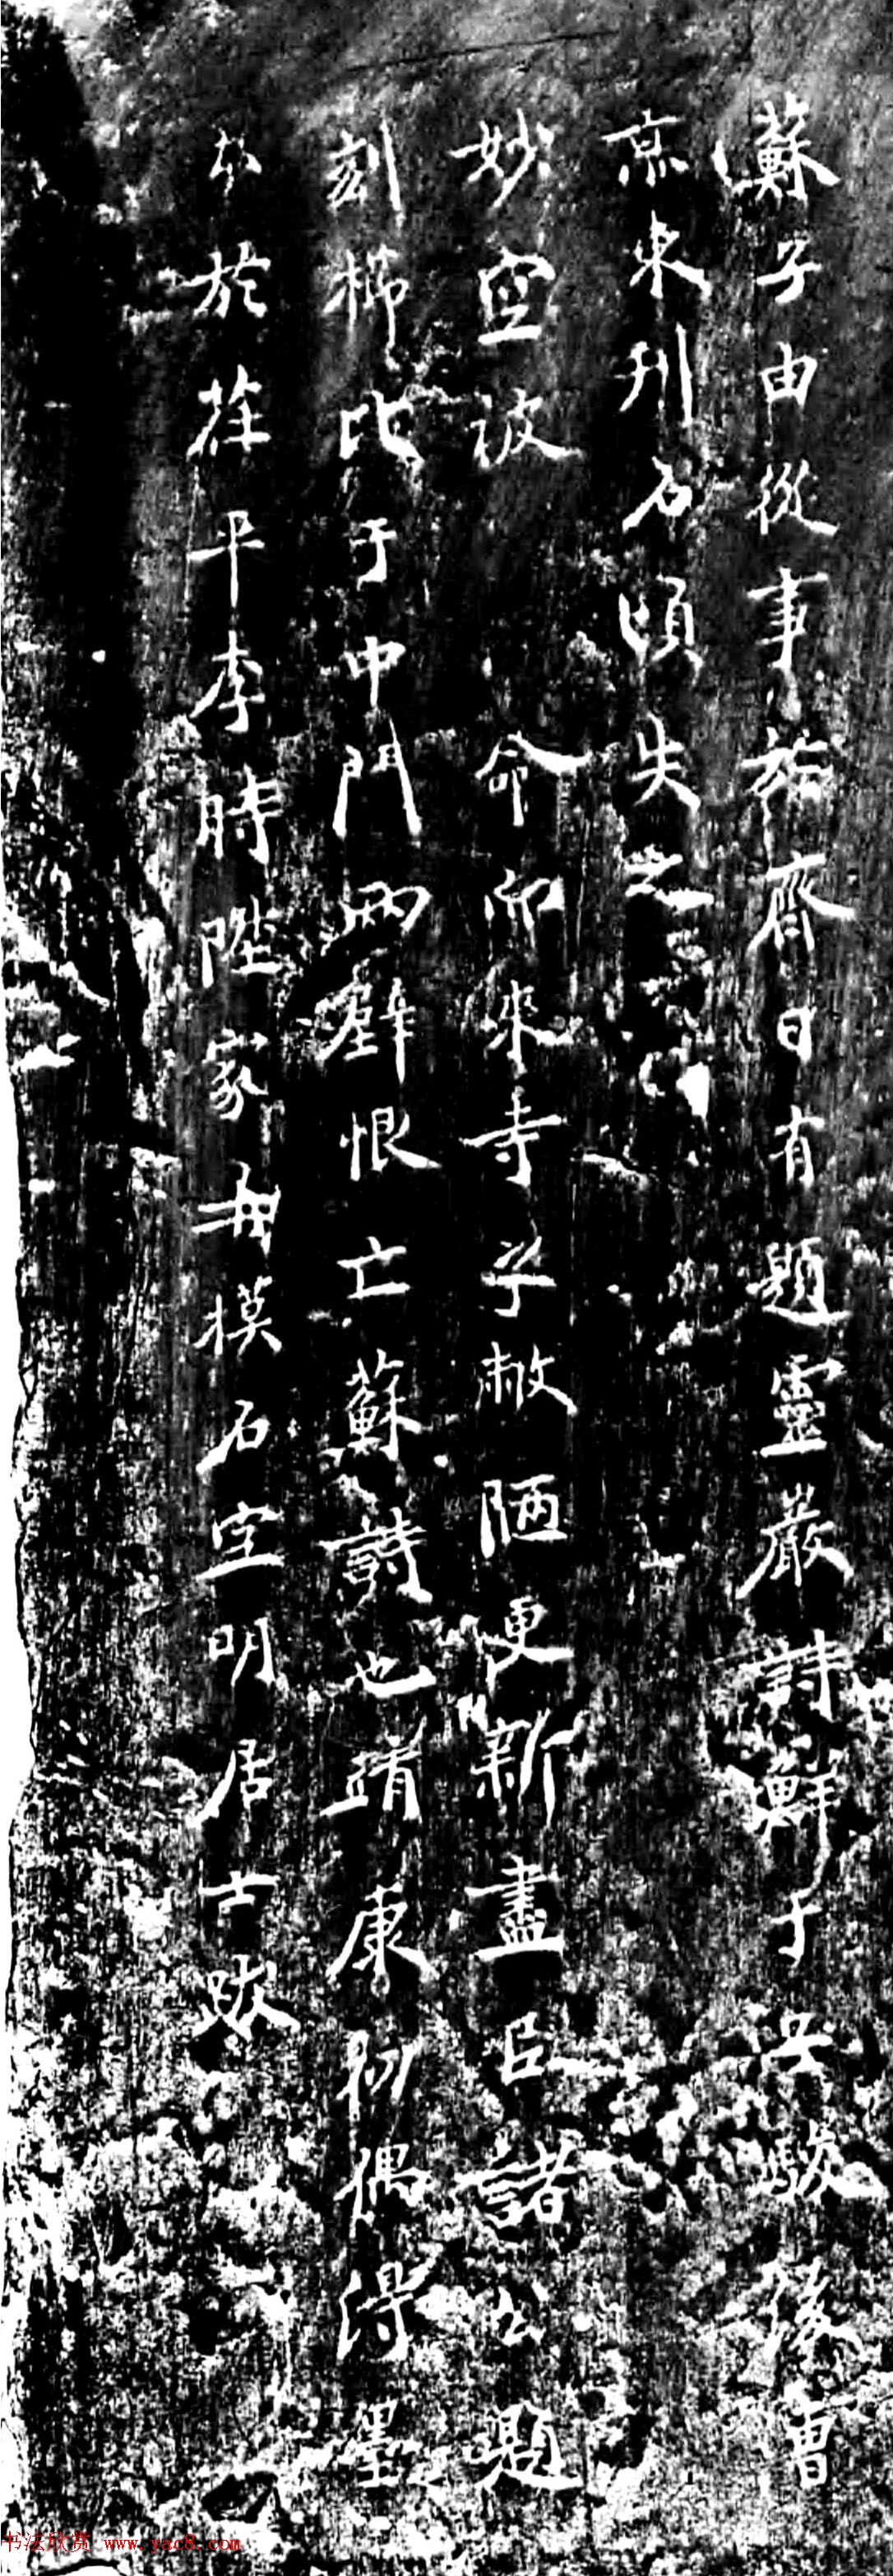 蘇子由從事於齊日有題靈巖詩鮮于公跋後曹
京來刊石頃失之
妙空被 命而來寺宇敝陋更新盡臣諸公題
刻櫛比于中門兩壁恨亡蘇詩也靖康初偶得墨
本於茌平李時陞家輒模石空明居士跋
书法欣赏 www.yac8.com